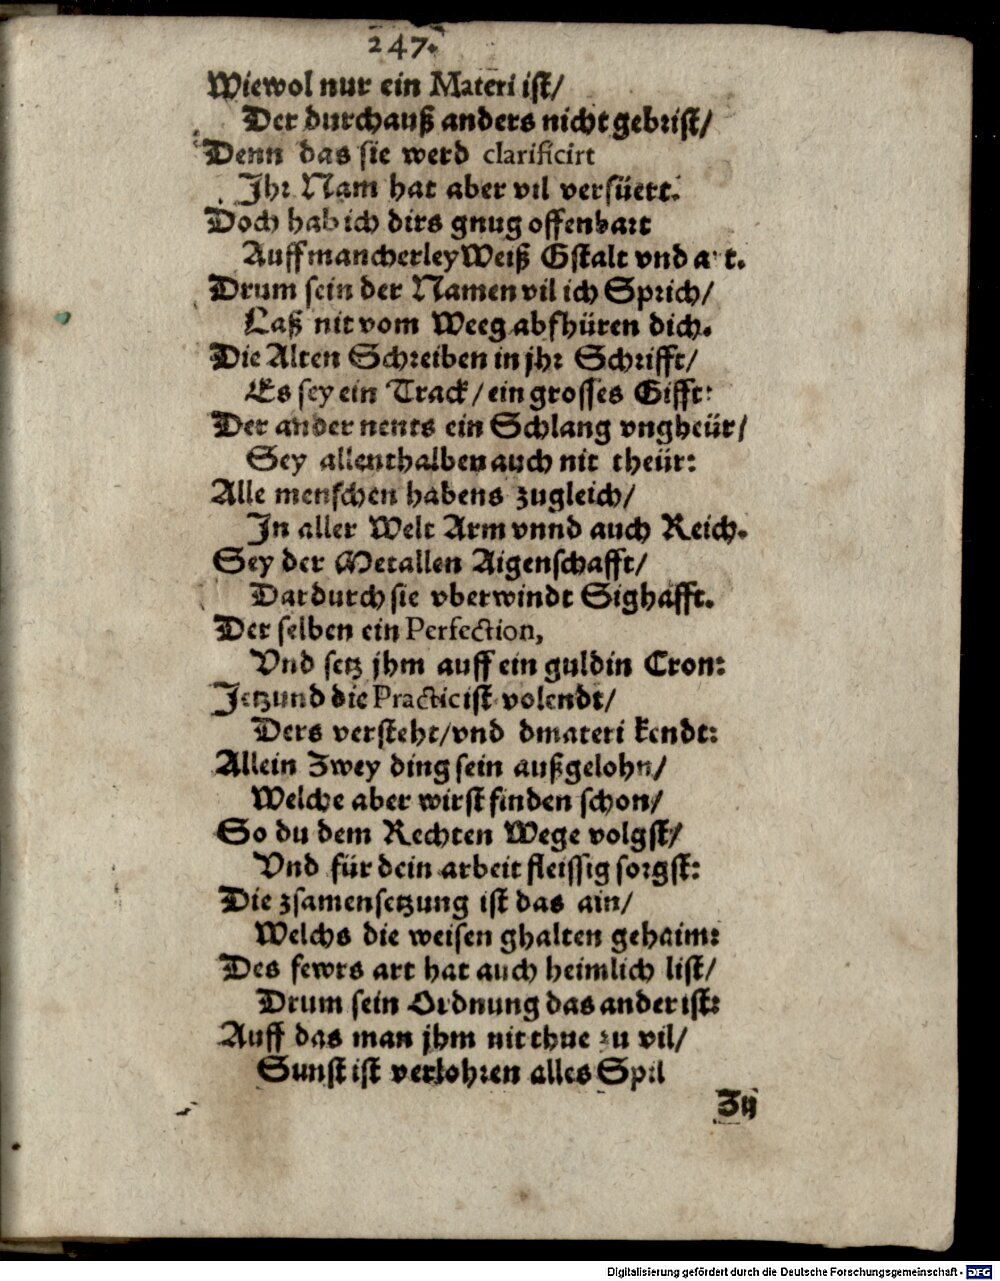 247.
Wiewol nur ein Materi ist/
Der durchauß anders nicht gebrist/
Denn das sie werd clarificirt
Ihr Nam hat aber vil versüert.
Doch hab ich dirs gnug offenbart
Auff mancherley Weiß Gstalt vnd art.
Drum sein der Namen vil ich Sprich/
Laß nit vom Weeg abfhüren dich.
Die Alten Schreiben in jhr Schrifft/
Es sey ein Track/ ein grosses Gifft:
Der ander nents ein Schlang vngheür/
Sey allenthalben auch nit theür:
Alle menschen habens zugleich/
In aller Welt Arm vnnd auch Reich.
Sey der Metallen Aigenschafft/
Dardurch sie vberwindt Sighafft.
Der selben ein Perfection,
Vnd setz jhm auff ein guldin Cron:
Jetzund die Practic ist volendt/
Ders versteht/vnd dmateri kendt:
Allein Zwey ding sein außgelohn/
Welche aber wirst finden schon/
So du dem Rechten Wege volgst/
Vnd für dein arbeit fleissig sorgst:
Die zsamensetzung ist das ain/
Welchs die weisen ghalten gehaim:
Des fewrs art hat auch heimlich list/
Drum sein Ordnung das ander ist:
Auff das man jhm nit thue zu vil/
Sunst ist verlohren alles Spil
Zy
Digitalisierung gefördert durch die Deutsche Forschungsgemeinschaft - DFG